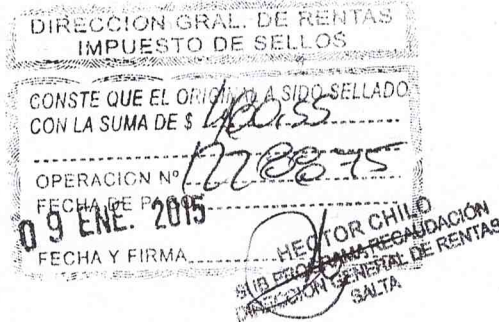 DIRECCION GRAL. DE RENTAS
IMPUESTO DE SELLOS
CONSTE QUE EL ORIGINAL A SIDO SELLADO
CON LA SUMA DE $ 480,55
OPERACION Nº
FECHA DE PAGO
09 ENE. 2015
FECHA Y FIRMA
HECTOR CHILO
SUB PROGRAMA RECAUDACIÓN
DIRECCIÓN GENERAL DE RENTAS
SALTA